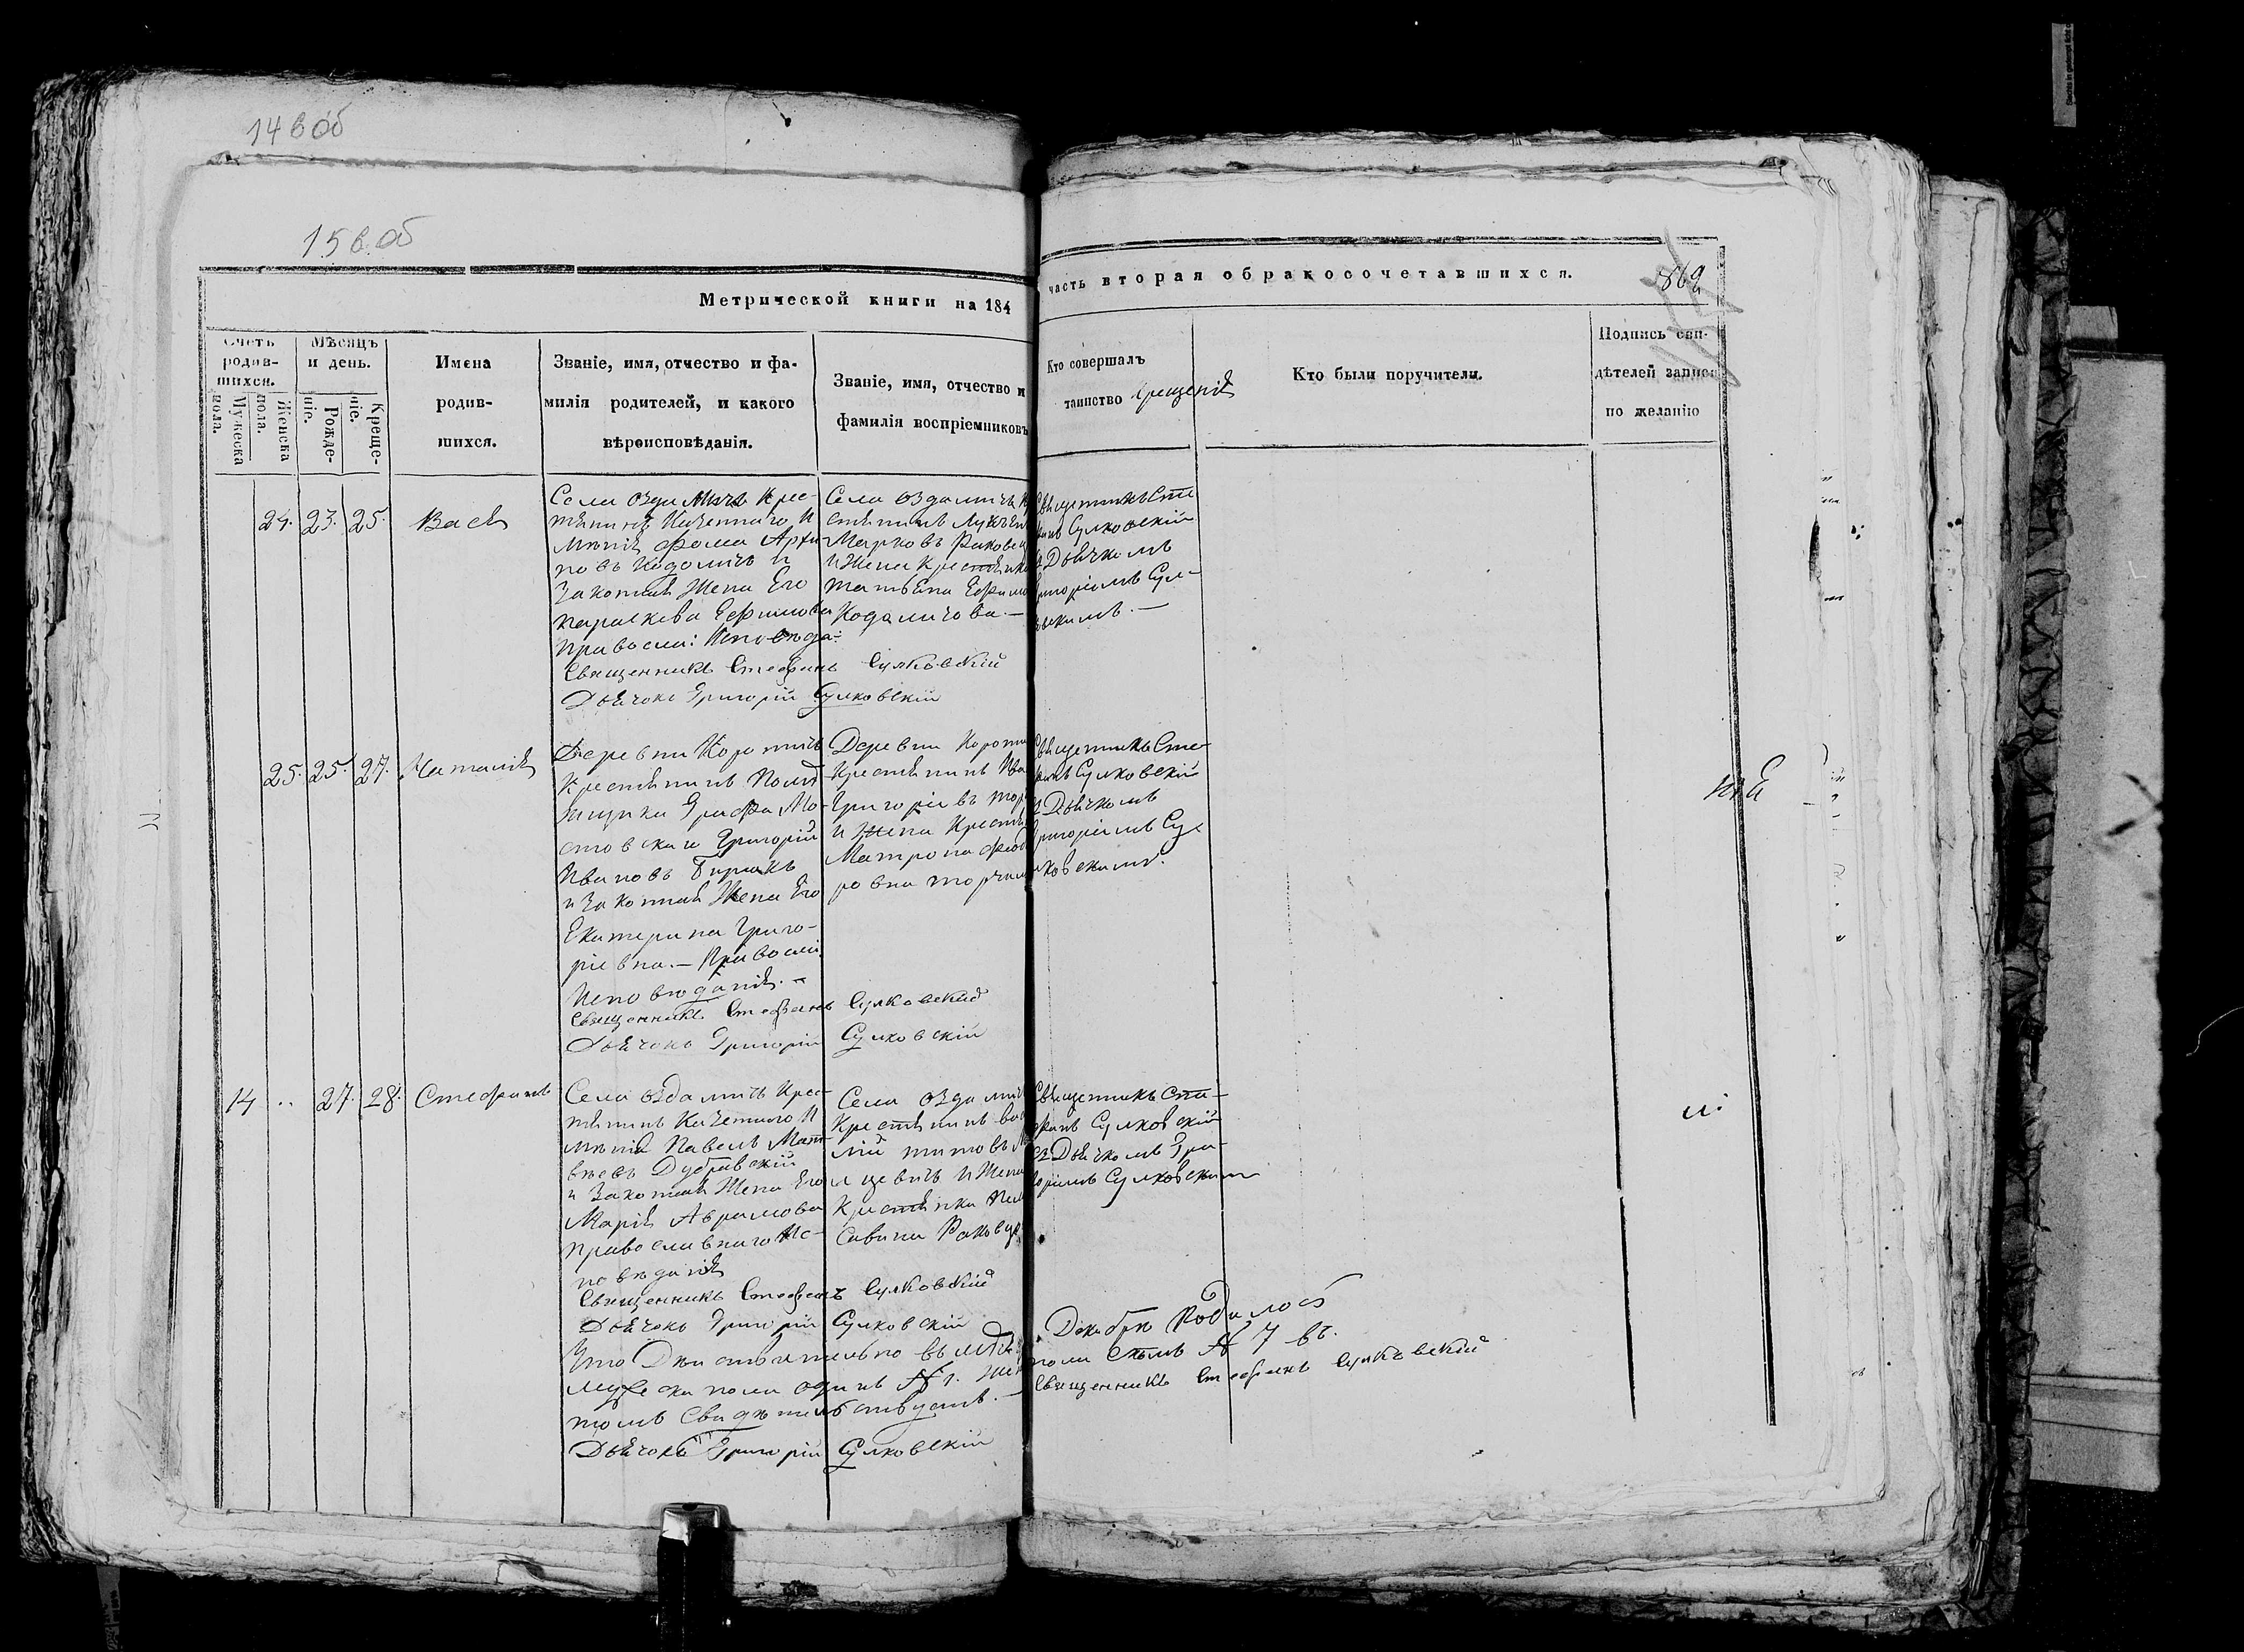 14 в об
15 в. об
Метрической книги на 184
часть вторая обракосочетавшихся.
862
Счетъ родив-шихся.
Мужеска пола.
Женска пола.
Мѣсяцъ и день.
Рожде-ніе.
Креще-ніе.
Имена
родив-
шихся.
Званіе, имя, отчество и фа-
милія родителей, и какого
вѣроисповѣданія.
Званіе, имя, отчество и
фамилія воспріемниковъ
Кто совершалъ
таинство крещенія
Кто были поручители.
Подпись сви-
дѣтелей записи
по желанію
24. 23. 25.
Села Оздамичъ Крес-
тянинъ Казеннаго И
мѣнія Фома Архи
повъ Кодоличъ и
Законная Жена Его
Параскева Ефимова
Правосла: Исповѣда:
Священникъ Стефанъ Сулковскій
Дьячокъ Григорій Сулковскій
Села Оздамичъ К
стянинъ
Марковъ Раковец
и Жена Крестянка
Татьяна Ефимо
Кодоличова.—
Священникъ Сте
фанъ Сулковскій
з Дьячкомъ
Григоріемъ Сул-
ковскимъ.—
25. 25. 27. Наталія
Деревни Коротичъ
Крестянинъ Помѣ
щика Графа Мо-
стовскаго Григорій
Ивановъ Бирукъ
и Законная Жена Его
Екатерина Григо-
ріевна.— Правосла
Исповѣданія.—
Священникъ Стефанъ Сулковскій
Дьячокъ Григорій Сулковскій
Деревни Короти
Крестянинъ Ива
Григоріевъ
и Жена Крестя
Матрона Федо
ровна
Священникъ Сте-
фанъ Сулковскій
з Дьячкомъ
Григоріемъ Сул
ковскимъ.
14 .. 27. 28. Стефанъ
Села Оздамичъ Крес-
тянинъ Казеннаго И
мѣнія Павелъ Мат-
вѣевъ Дубравскій
и Законная Жена Его
Марія Аврамова
Православнаго Ис-
повѣданія
Священникъ Стефанъ Сулковскій
Дьячокъ Григорій Сулковскій
Села Оздамичъ
Крестянинъ Васи
лій Титовъ
и Жена
Крестянка
Савина Раковец
Священникъ Сте-
фанъ Сулковскій
з Дьячкомъ Гри-
горіемъ Сулковским
Что Дѣиствительно въ мѣся
Декабрѣ Родилось
Мужеска пола одинъ № 1. Жен
пола семь № 7 въ
томъ Свидѣтельствуемъ.—
Священникъ Стефанъ Сулковскій
Дьячокъ Григорій Сулковскій